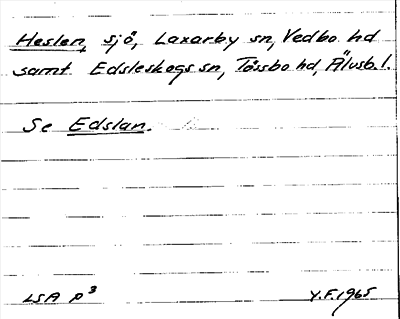 Heslen, sjö, Laxarby sn, Vedbo hd
samt Edsleskogs sn, Tössbo hd, Älvsb. l.
Se Edslan.
LSA p³
Y.F. 1965